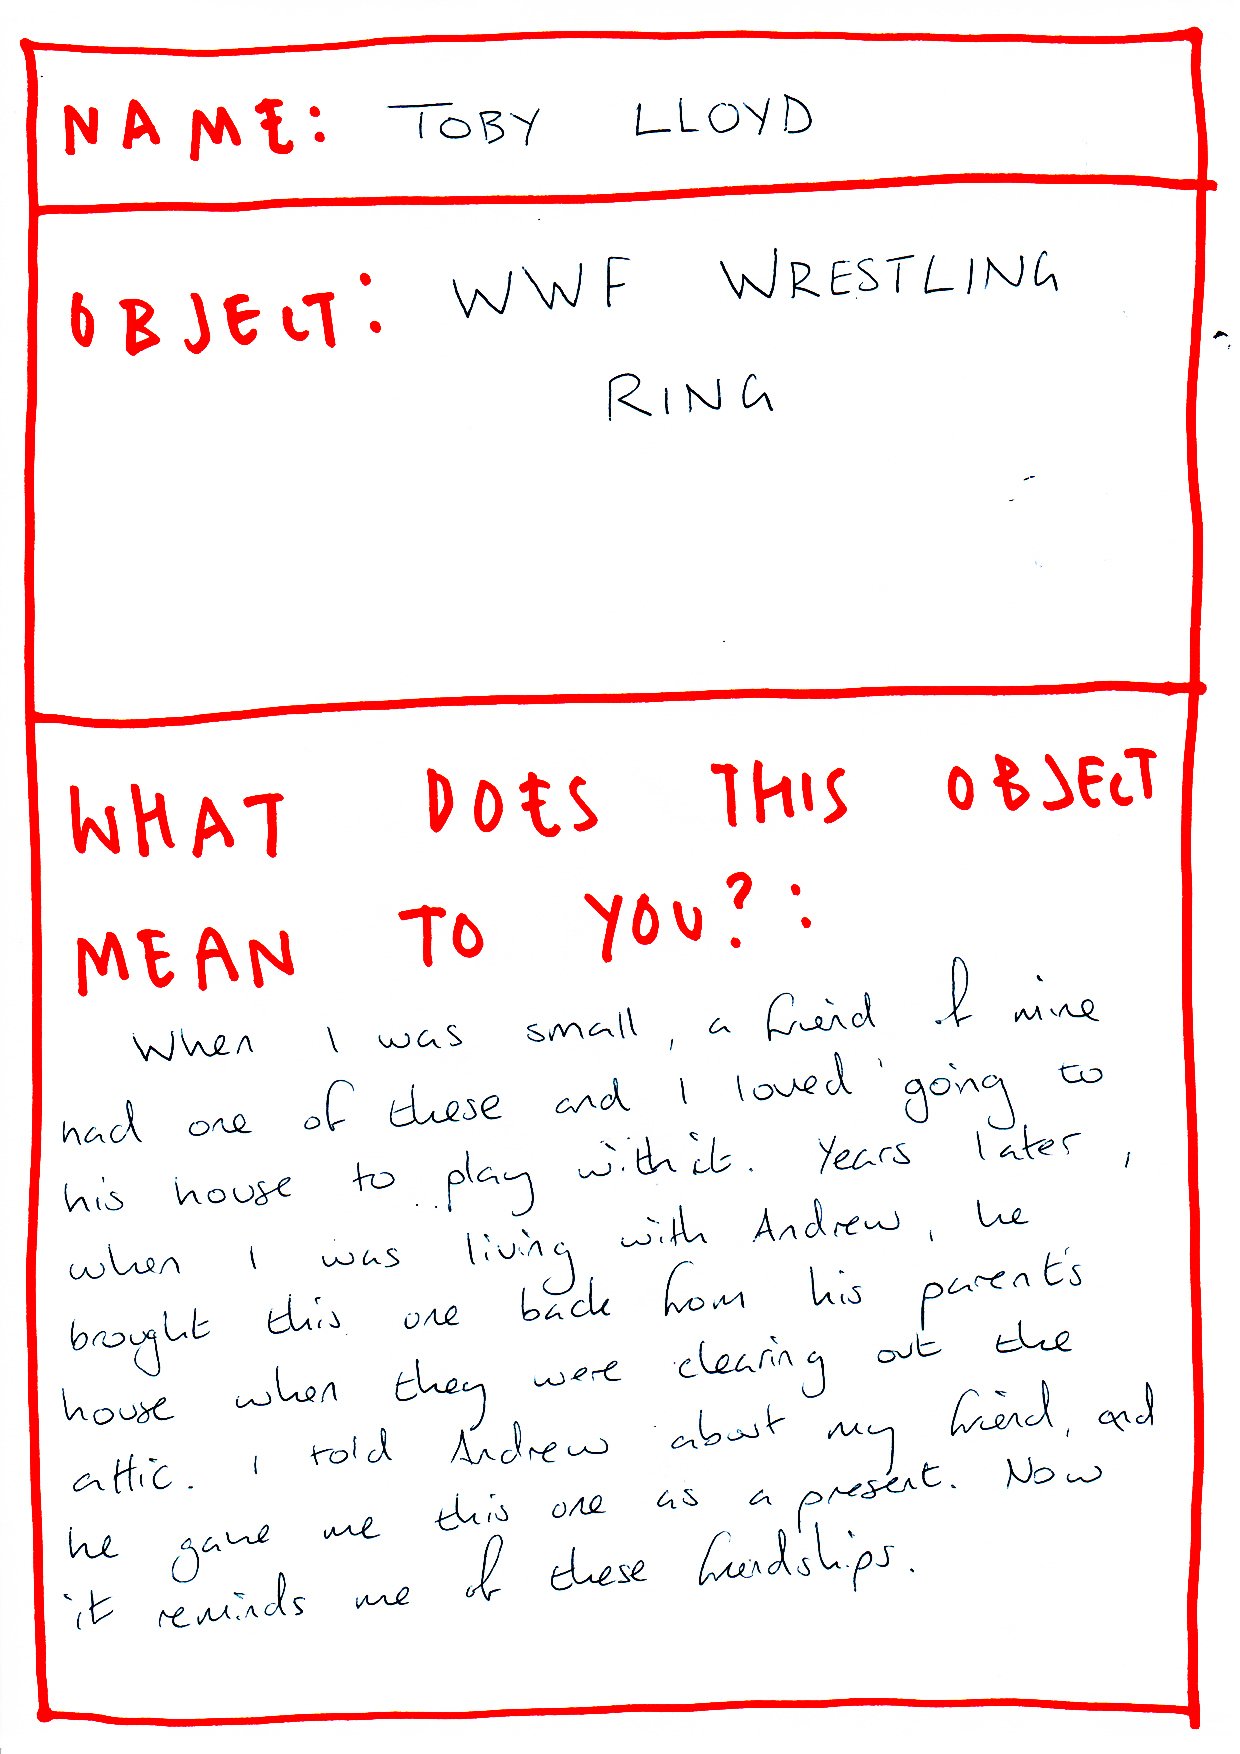 NAME: TOBY LLOYD
OBJECT: WWF WRESTLING
RING
WHAT DOES THIS OBJECT
MEAN TO YOU?:
When I was small, a friend of mine
had one of these and I loved going to
his house to play with it. Years later,
when I was living with Andrew, he
brought this one back from his parent's
house when they were clearing out the
attic. I told Andrew about my friend, and
he gave me this one as a present. Now
it reminds me of these friendships.